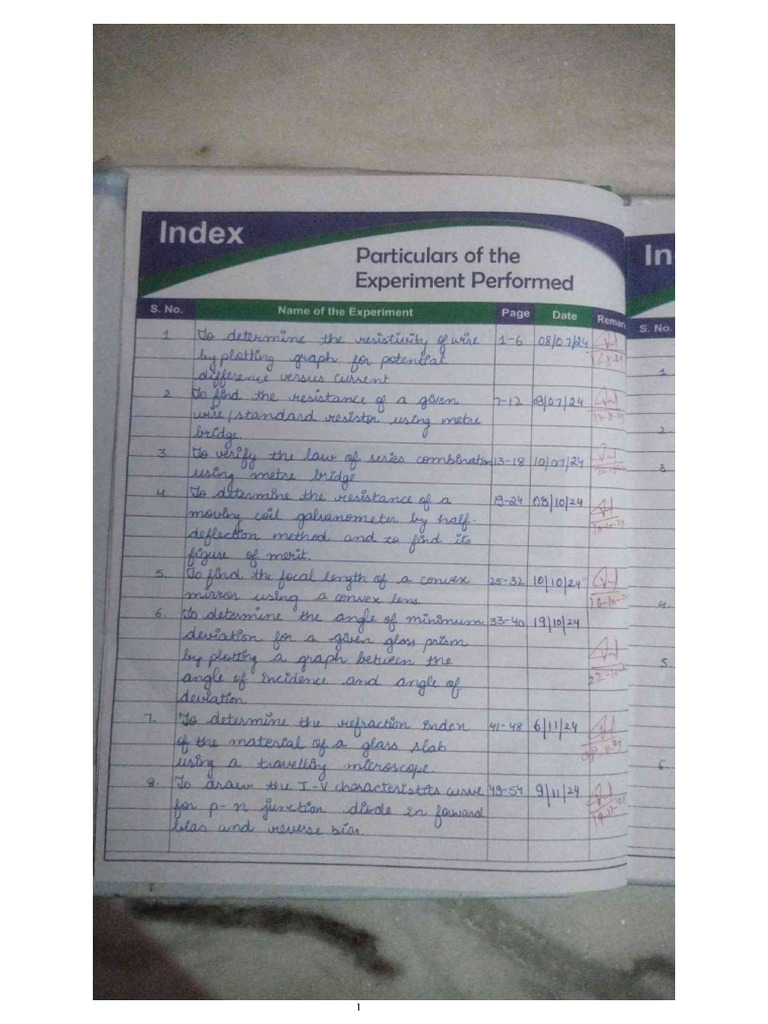 Index
Particulars of the
Experiment Performed
In
S. No. Name of the Experiment Page Date Remar
S. No.
1 To determine the resistivity of wire 1-6 08/07/24
by plotting graph for potential
difference versus current
2. To find the resistance of a given 7-12 09/07/24
wire/standard resistor using metre
bridge.
3. To verify the law of series combination 13-18 10/07/24
using metre bridge
4. To determine the resistance of a 19-24 08/10/24
moving coil galvanometer by half-
deflection method and to find its
figure of merit.
5. To find the focal length of a convex 25-32 10/10/24
mirror using a convex lens.
6. To determine the angle of minimum 33-40 19/10/24
deviation for a given glass prism
by plotting a graph between the
angle of incidence and angle of
deviation.
7. To determine the refraction index 41-48 6/11/24
of the material of a glass slab
using a travelling microscope.
8. To draw the I-V characteristics curve 49-54 9/11/24
for p-n junction diode in forward
bias and reverse bias.
1.
2.
3.
4.
5.
6.
1